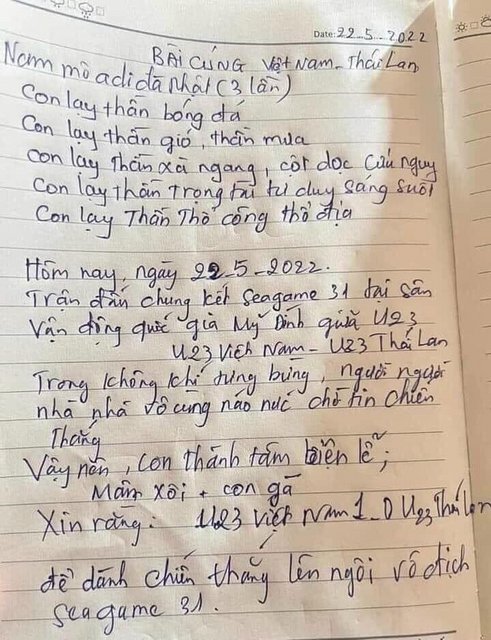 Date: 22-5-2022
BÀI CÚNG Việt Nam - Thái Lan
Nam mô adiđà phật (3 lần)
Con lạy thần bóng đá
Con lạy thần gió, thần mưa
Con lạy thần xà ngang, cột dọc cứu nguy
Con lạy thần Trọng tài tư duy sáng suốt
Con lạy Thần Thổ công thổ địa
Hôm nay, ngày 22-5-2022.
Trận đấu chung kết Seagame 31 tại sân
Vận động quốc gia Mỹ Đình giữa U23
U23 Việt Nam - U23 Thái Lan
Trong không khí tưng bừng, người người
nhà nhà vô cùng náo nức chờ tin chiến
Thắng
Vậy nên, con thành tâm biện lễ;
Mâm xôi + con gà
Xin rằng: U23 Việt Nam 1-0 U23 Thái Lan
để dành chiến thắng lên ngôi vô địch
Seagame 31.